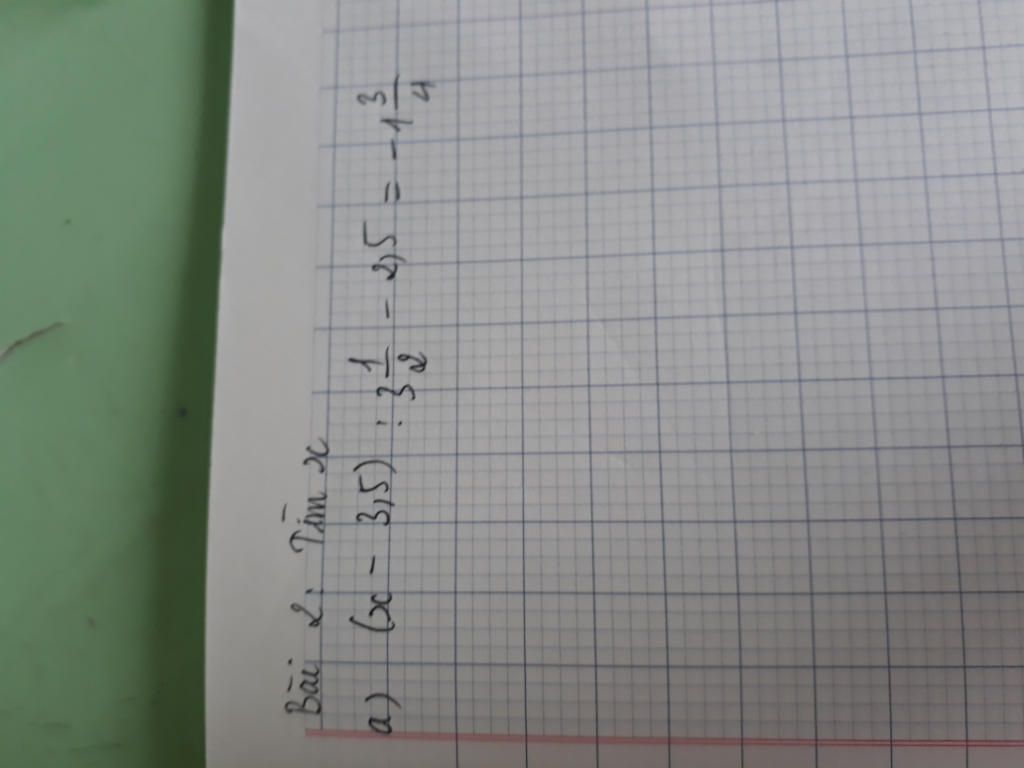 Bài 2: Tìm x
a) (x - 3,5) : 3 1/2 - 2,5 = - 1 3/4